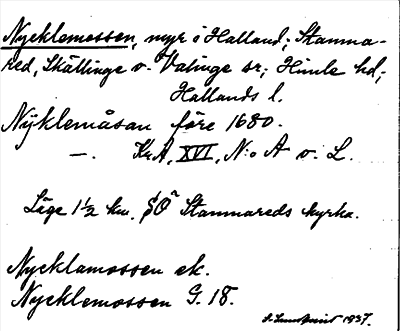 Nycklemossen, myr i Halland; Stamna-
red, Skällinge o. Valinge sr; Himle hd;
Hallands l.
Nÿklemåsan före 1680.
—. KrA, XVI, N:o A o. L.
Läge 1½ km. SO Stamnareds kyrka.
Nycklamossen ek.
Nycklemossen G. 18.
S. Lundquist 1937.